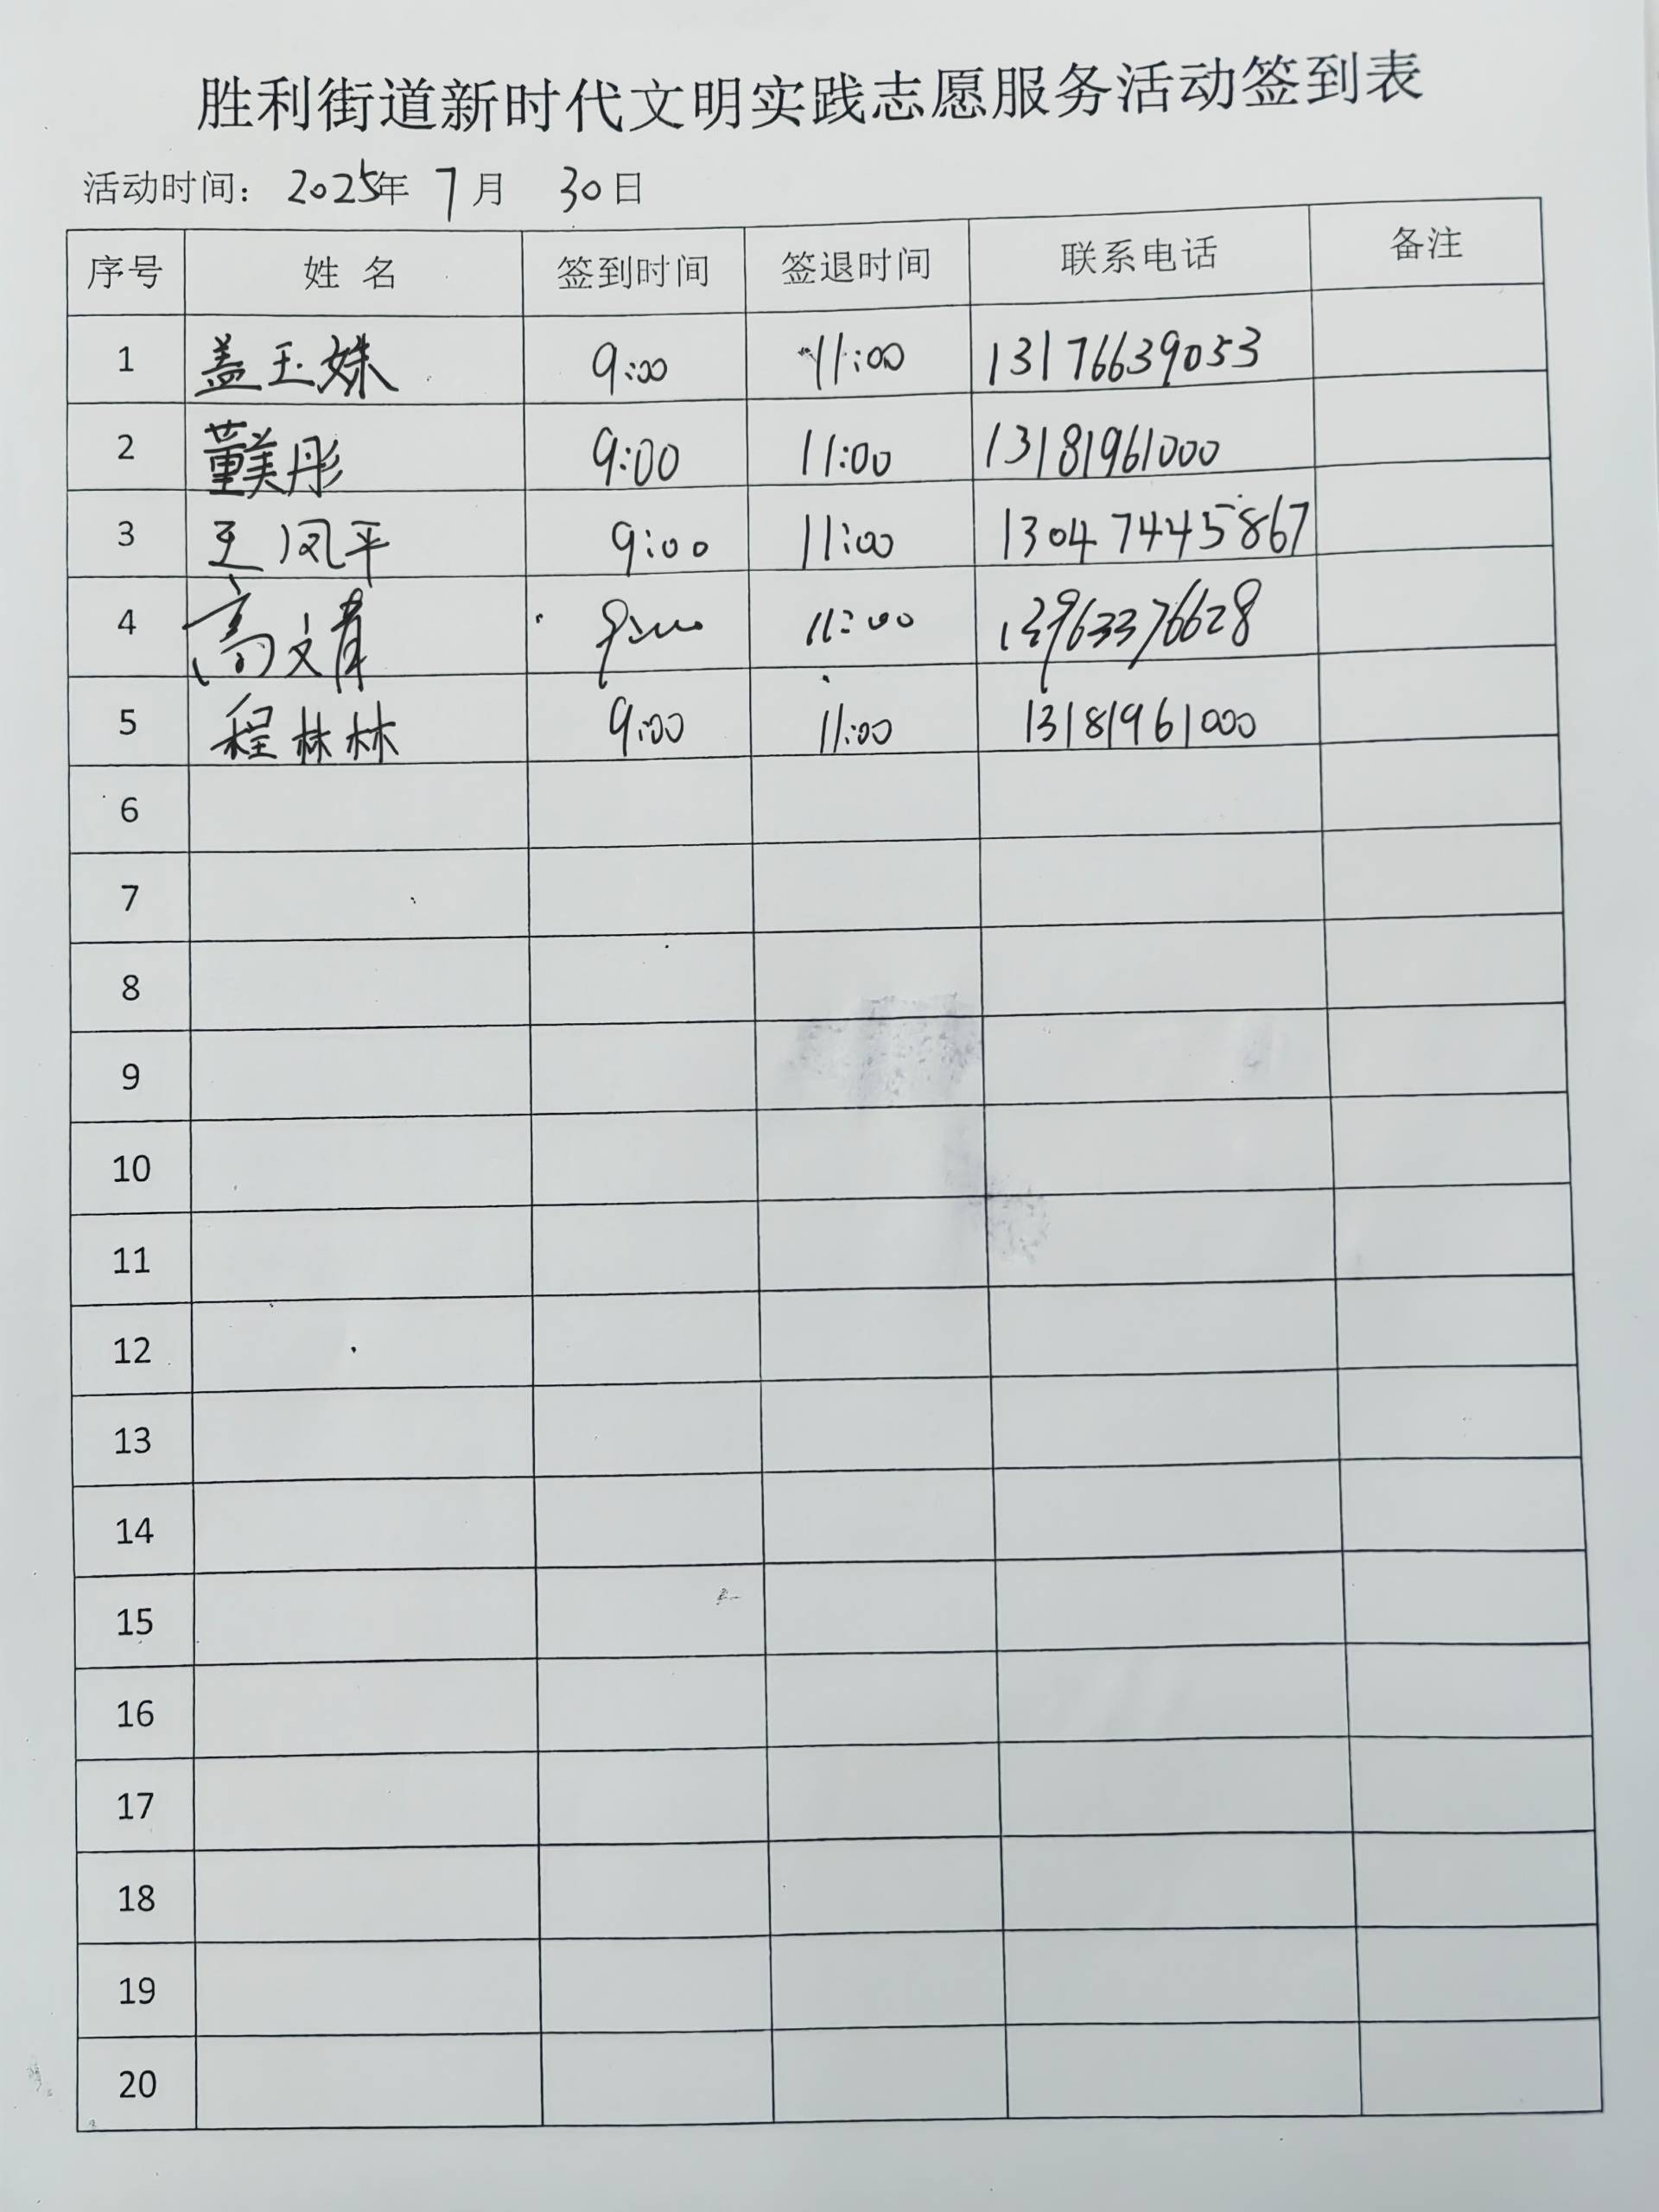 胜利街道新时代文明实践志愿服务活动签到表
活动时间： 2025年 7月 30日
序号 姓 名 签到时间 签退时间 联系电话 备注
1 盖玉姝 9:00 11:00 13176639053
2 董美彤 9:00 11:00 13181961000
3 王凤平 9:00 11:00 13047445867
4 高文青 9:00 11:00 13963376628
5 程林林 9:00 11:00 13181961000
6
7
8
9
10
11
12
13
14
15
16
17
18
19
20